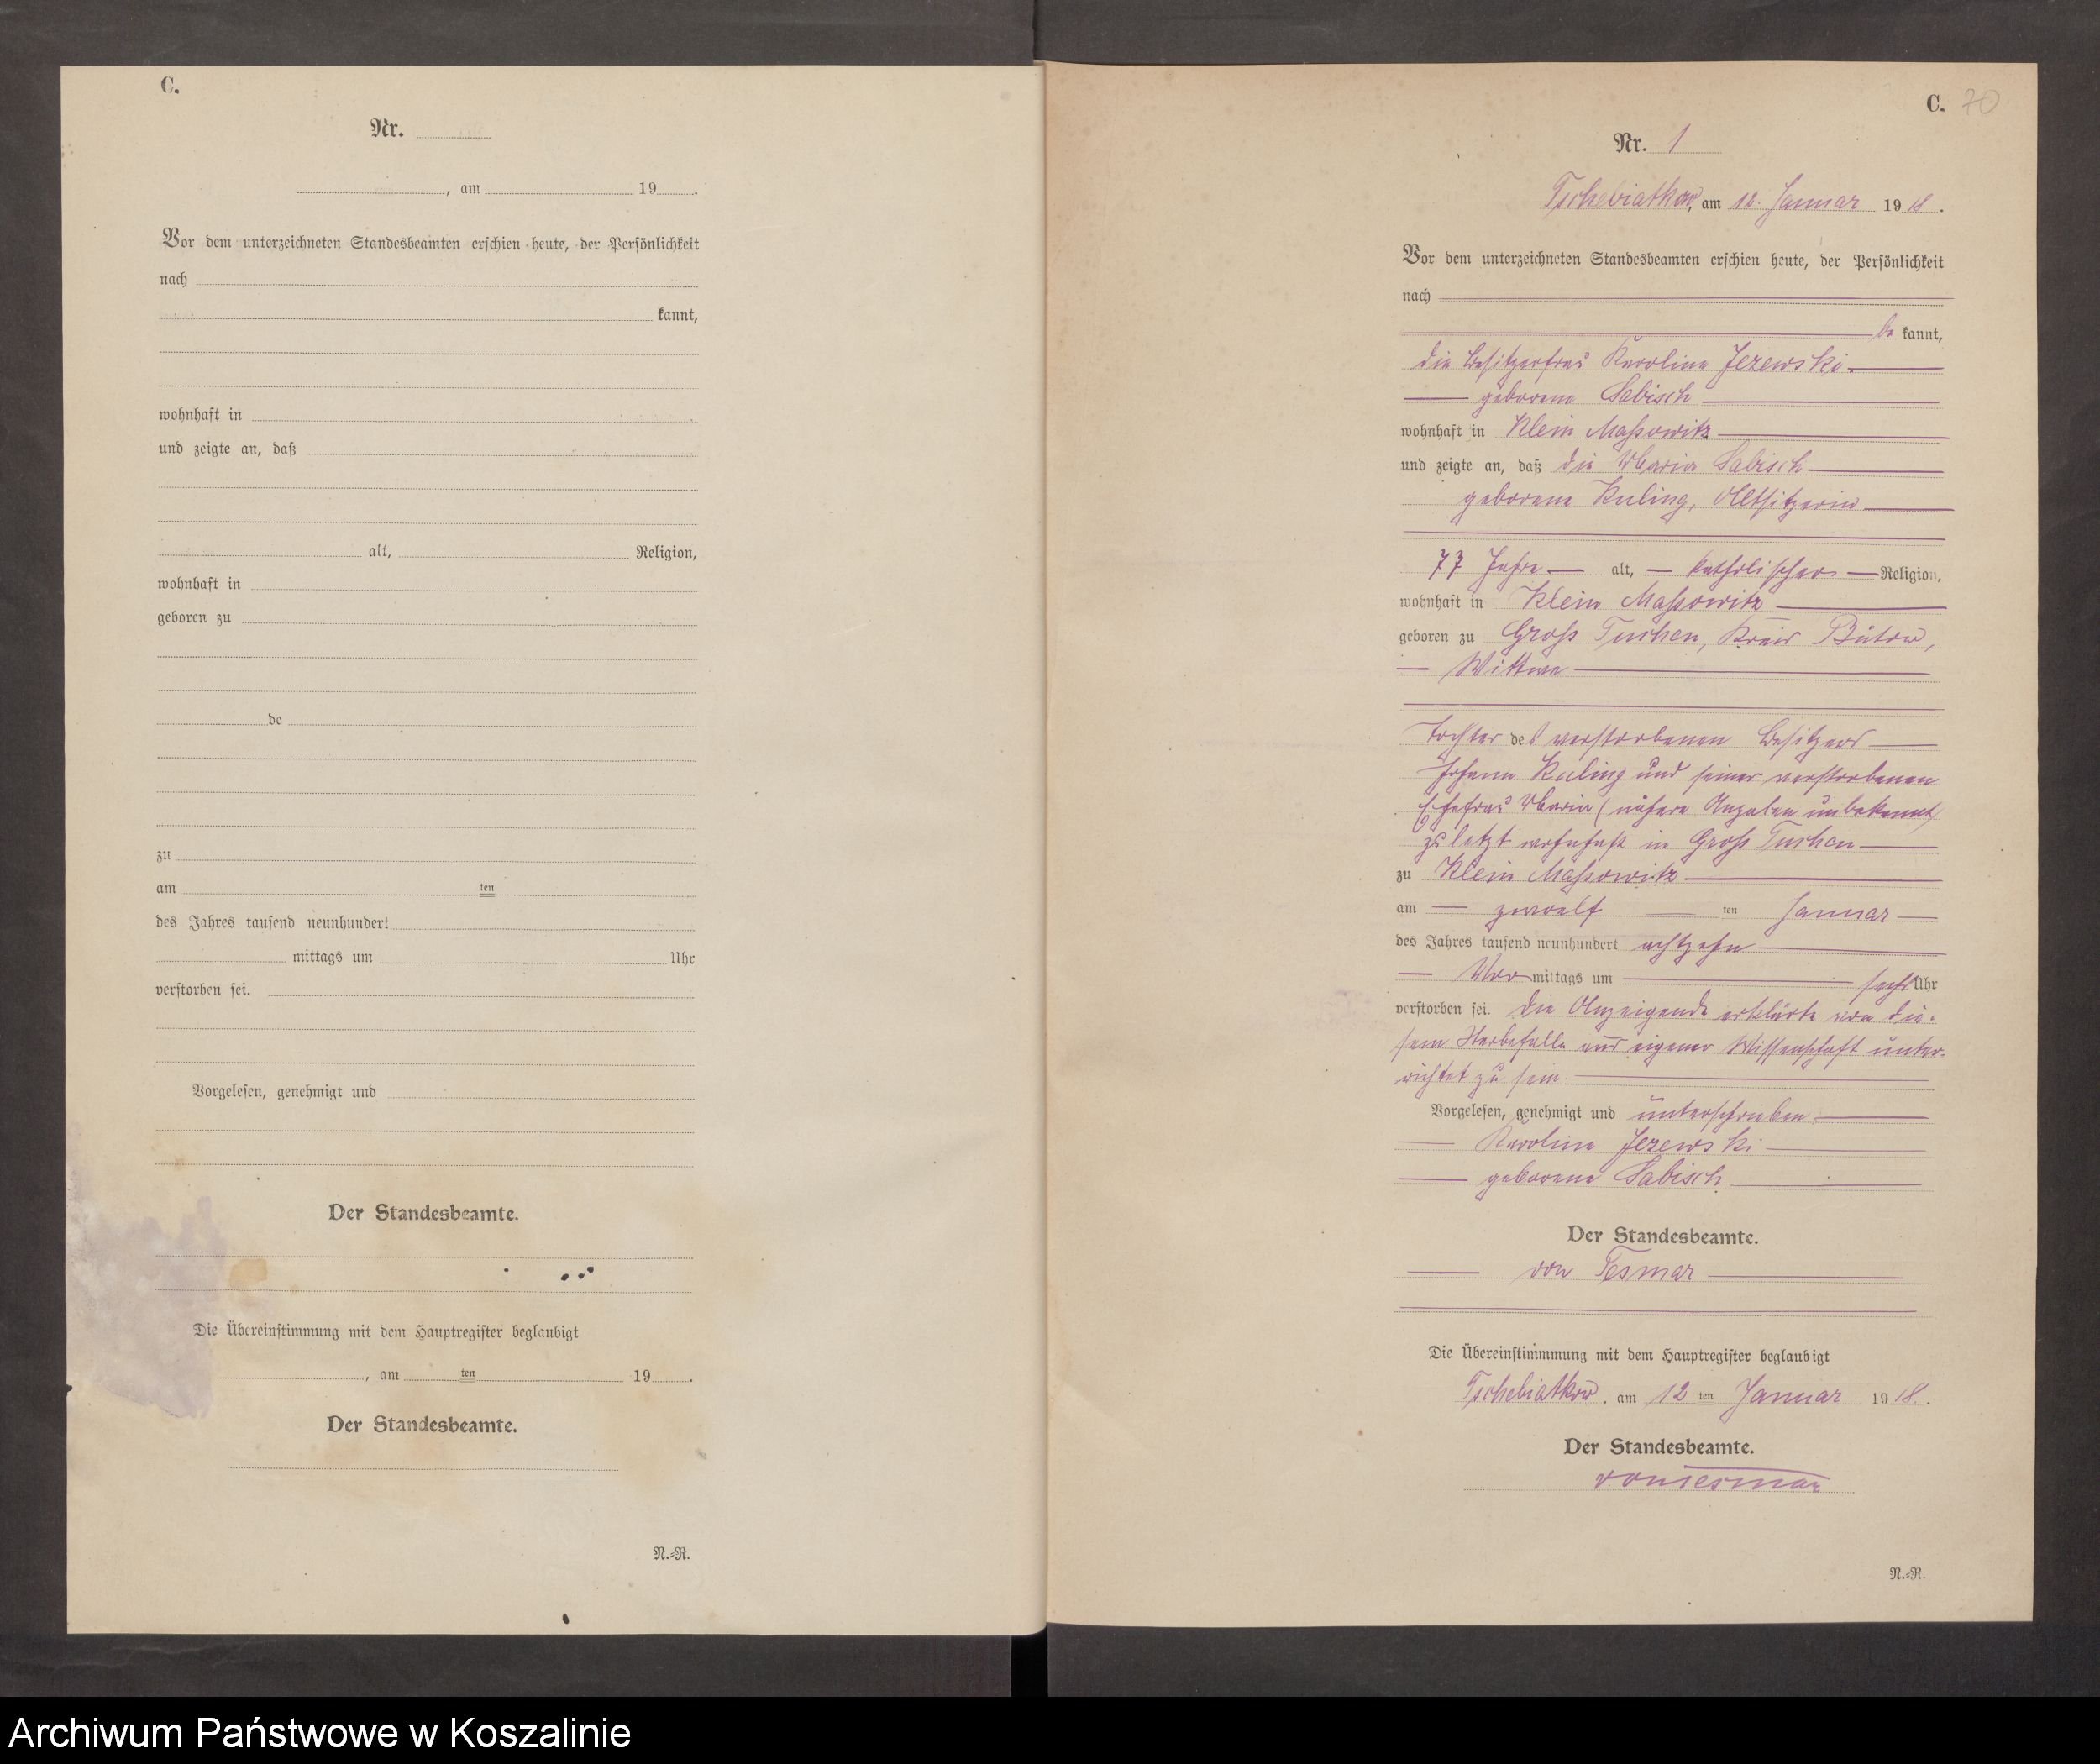 C.
Nr.
, am 19 .
Vor dem unterzeichneten Standesbeamten erschien heute, der Persönlichkeit
nach
kannt,
wohnhaft in
und zeigte an, daß
alt, Religion,
wohnhaft in
geboren zu
de
zu
am ten
des Jahres tausend neunhundert
mittags um Uhr
verstorben sei.
Vorgelesen, genehmigt und
Der Standesbeamte.
Die Übereinstimmung mit dem Hauptregister beglaubigt
, am ten 19 .
Der Standesbeamte.
N.=R.
C. 70
Nr. 1
Tschebiatkow, am 12. Januar 19 18.
Vor dem unterzeichneten Standesbeamten erschien heute, der Persönlichkeit
nach
be kannt,
die Besitzerfrau Karolina Jezewski
geborene Sabisch
wohnhaft in Klein Massowitz
und zeigte an, daß die Maria Sabisch
geborene Kuling, Altsitzerin
77 Jahre alt, katholischer Religion,
wohnhaft in Klein Massowitz
geboren zu Gross Tuchen, Kreis Bütow,
Wittwe
Tochter des verstorbenen Besitzers
Johann Kuling und seiner verstorbenen
Ehefrau Maria (nähere Angaben unbekannt)
zuletzt wohnhaft in Gross Tuchen
zu Klein Massowitz
am zwoelf ten Januar
des Jahres tausend neunhundert achtzehn
Vor mittags um sechs Uhr
verstorben sei. Die Anzeigende erklärte von die-
sem Sterbefalle aus eigener Wissenschaft unter-
richtet zu sein.
Vorgelesen, genehmigt und unterschrieben.
Karolina Jezewski
geborene Sabisch
Der Standesbeamte.
von Tesmar
Die Übereinstimmung mit dem Hauptregister beglaubigt
Tschebiatkow, am 12 ten Januar 19 18.
Der Standesbeamte.
von Tesmar
N.=R.
Archiwum Państwowe w Koszalinie